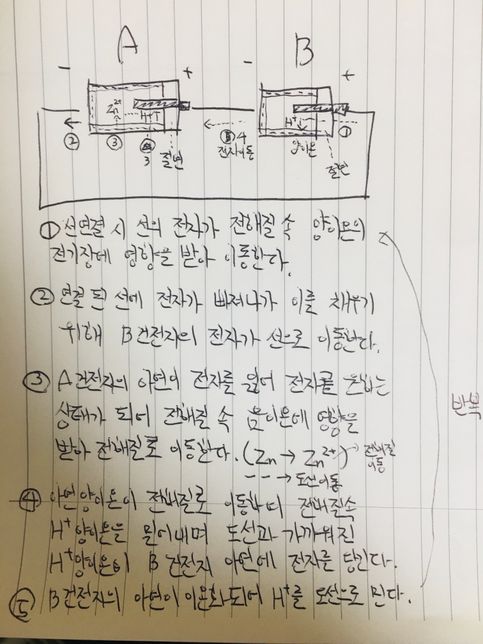 A
B
-
+
-
+
Zn²⁺
H⁺
H⁺
②
③
3
절연
4
전자이동
양이온
①
절연
① 선연결 시 선의 전자가 전해질 속 양이온의
전기장에 영향을 받아 이동한다.
② 연결 된 선에 전자가 빠져나가 이를 채우기
위해 B건전지의 전자가 선으로 이동한다.
③ A건전지의 아연이 전자를 잃어 전자를 원하는
상태가 되어 전해질 속 음이온에 영향을
받아 전해질로 이동한다. (Zn → Zn²⁺) 전해질
이동
---→ 도선이동
④ 아연양이온이 전해질로 이동하며 전해질속
H⁺양이온을 밀어내며 도선과 가까워진
H⁺양이온이 B 건전지 아연에 전자를 당긴다.
⑤ B건전지의 아연이 이온화되어 H⁺를 도선으로 민다.
반복